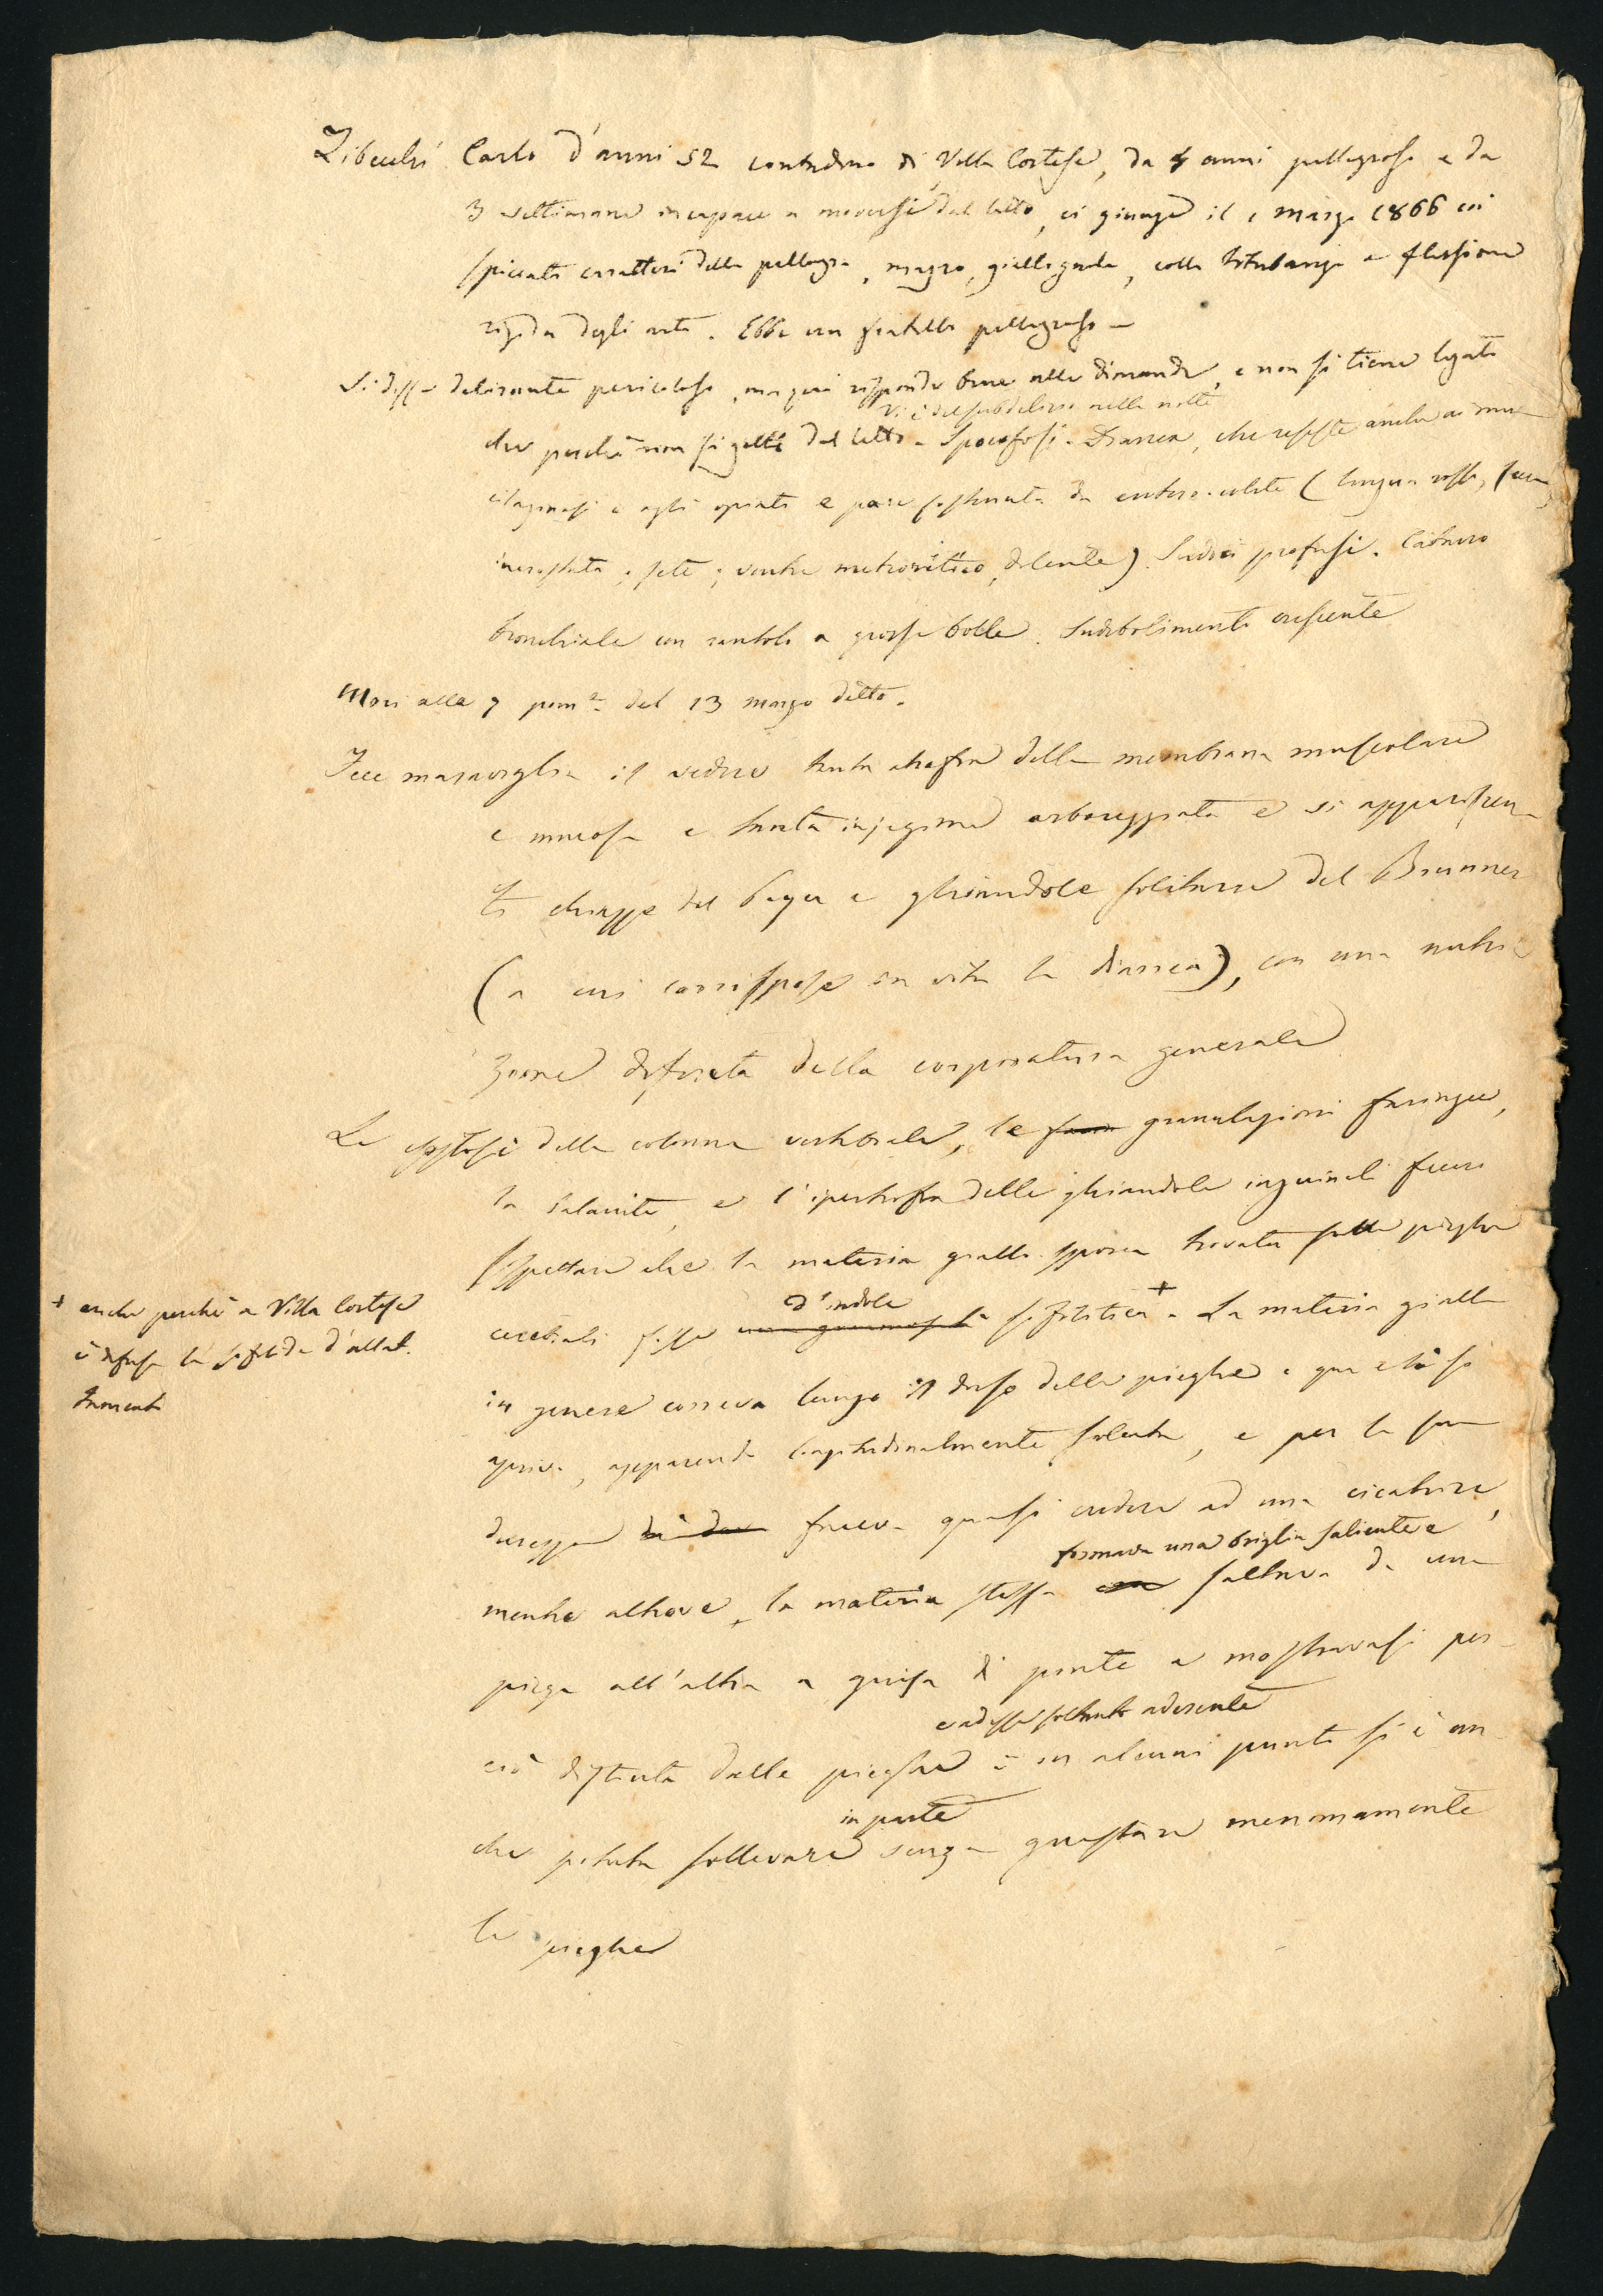 Carlo d'anni 52 contadino di Villa Cortese, da 4 anni pellagroso e da
3 settimane incapace a moversi dal letto, ci giunge il 1 marzo 1866 coi
spiccati caratteri della pellagra, magro, colla titubanza e flessione
rigida degli arti. Ebbe un fratello pellagroso
Si disse delirante pericoloso, ma qui risponde bene alle dimande, e non si tiene legato
Vi è del subdelirio nella notte
che perchè non si getti dal letto. Diarrea, che resiste anche ai mu-
cilaginosi e agli opiati e pare sostenuta da entero-colite (lingua rossa, secca,
incrostata; sete; ventre meteoritico, dolente). Sudori profusi. Catarro
bronchiale con rantoli a grosse bolle. Indebolimento crescente
Morì alle 7 pom.e del 13 marzo detto.
Fece maraviglia il vedere tanta atrofia della membrana muscolare
e mucosa e tanta injezione arboreggiata e sì appariscen-
ti chiazze del Peyer e ghiandole solitarie del Brunner
(a cui corrispose in vita la diarrea), con una nutri-
zione discreta della corporatura generale
Le esostosi della colonna vertebrale, le granulazioni faringee,
la balanite, e l'ipertrofia delle ghiandole inguinali fecero
sospettare che la materia giallo-sporca trovata sulle pieghe
d'indole
cerebrali fosse sifilitica +. La materia gialla
+ anche perchè a Villa Cortese
è diffusa la sifilide d'allat-
tamento
in genere correva lungo il dorso delle pieghe e qua e là si
apriva, apparendo longitudinalmente solcata, e per la sua
durezza faceva quasi credere ad una cicatrice,
formava una briglia saliente e
mentre altrove, la materia stessa saltava da una
piega all'altra a guisa di ponte e mostravasi per-
e ad esse soltanto aderente
ciò distinta dalle pieghe in alcuni punti si è an-
in parte
che potuta sollevare senza guastare menomamente
le pieghe